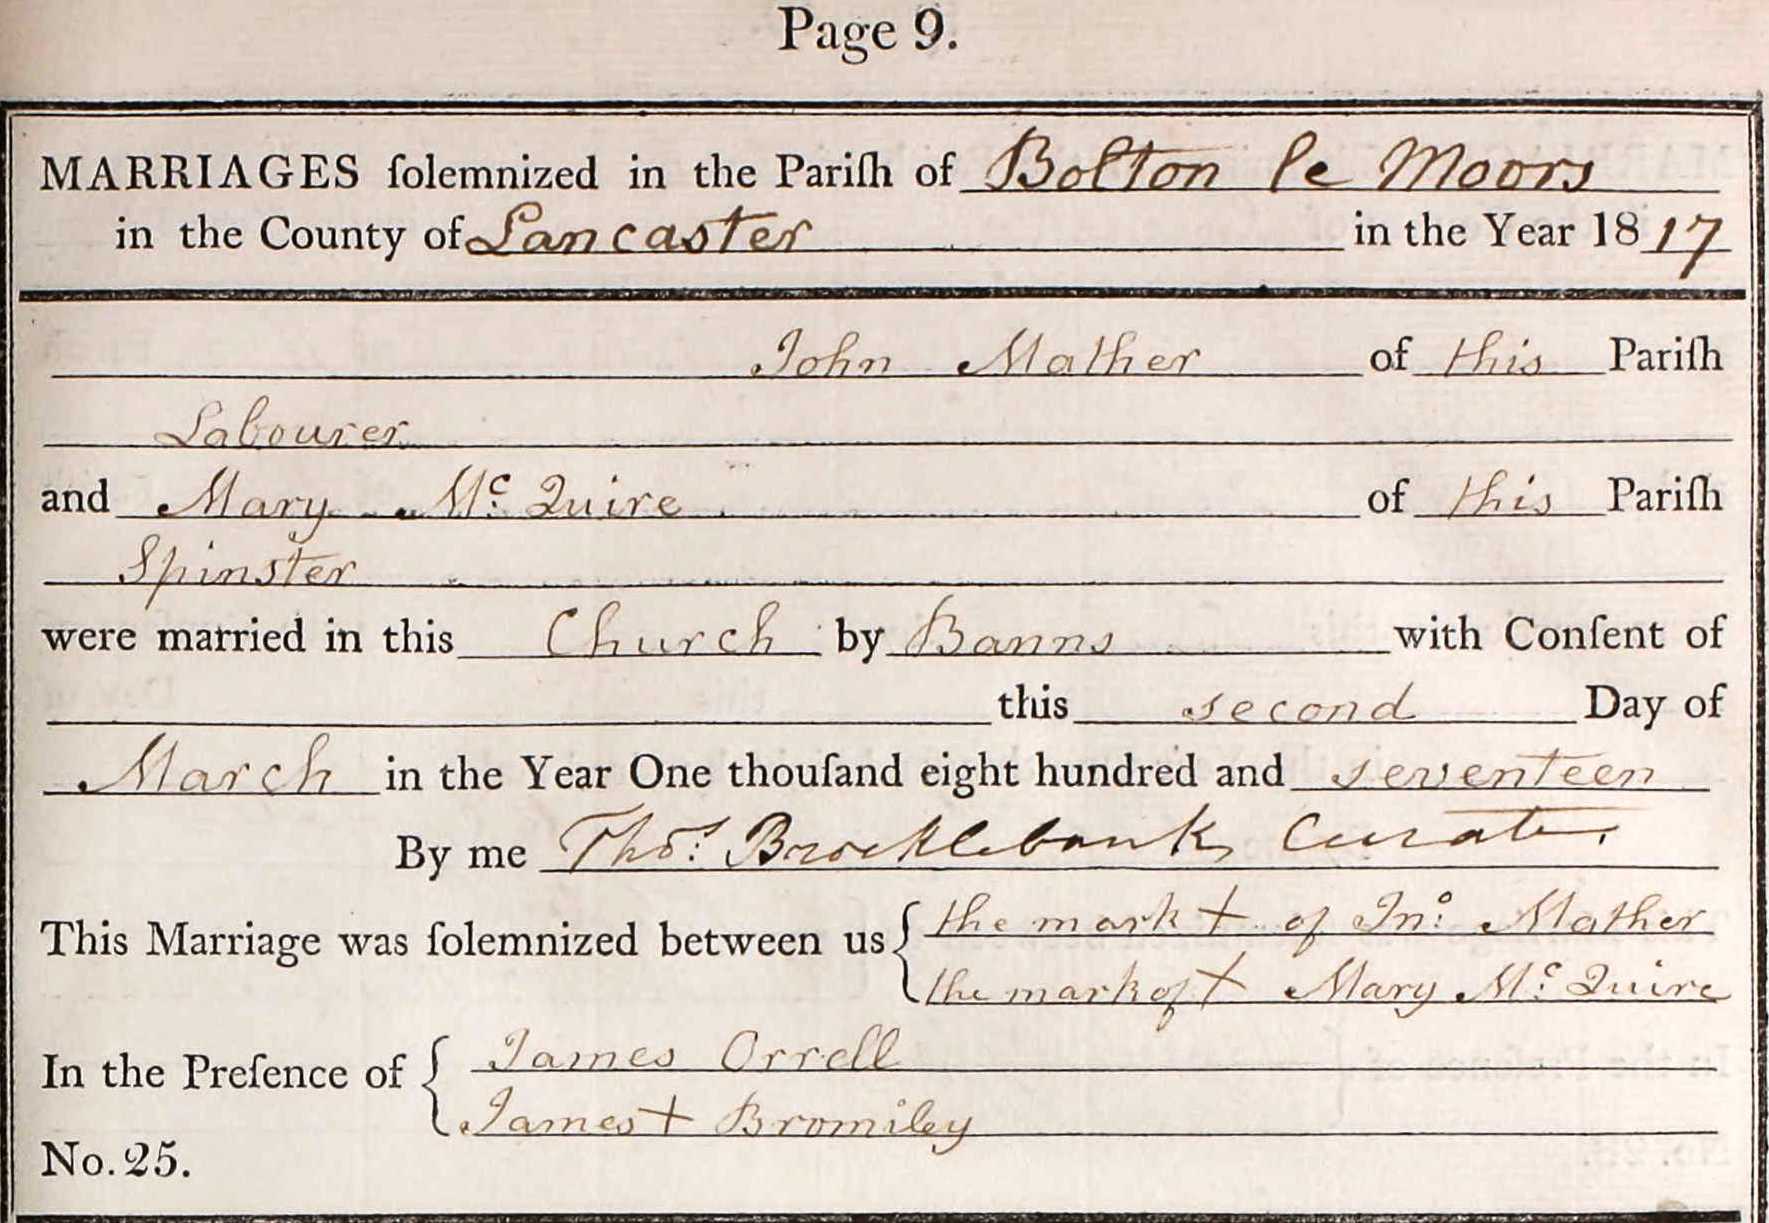 Page 9.
MARRIAGES ſolemnized in the Pariſh of Bolton le Moors
in the County of Lancaster in the Year 1817
John Mather of this Pariſh
Labourer
and Mary Mc. Quire of this Pariſh
Spinster
were married in this Church by Banns with Conſent of
this second Day of
March in the Year One thouſand eight hundred and seventeen
By me Thos. Brocklebank Curate.
This Marriage was ſolemnized between us { the mark + of Jno. Mather
the mark of + Mary Mc. Quire
In the Preſence of { James Orrell
James + Bromiley
No. 25.